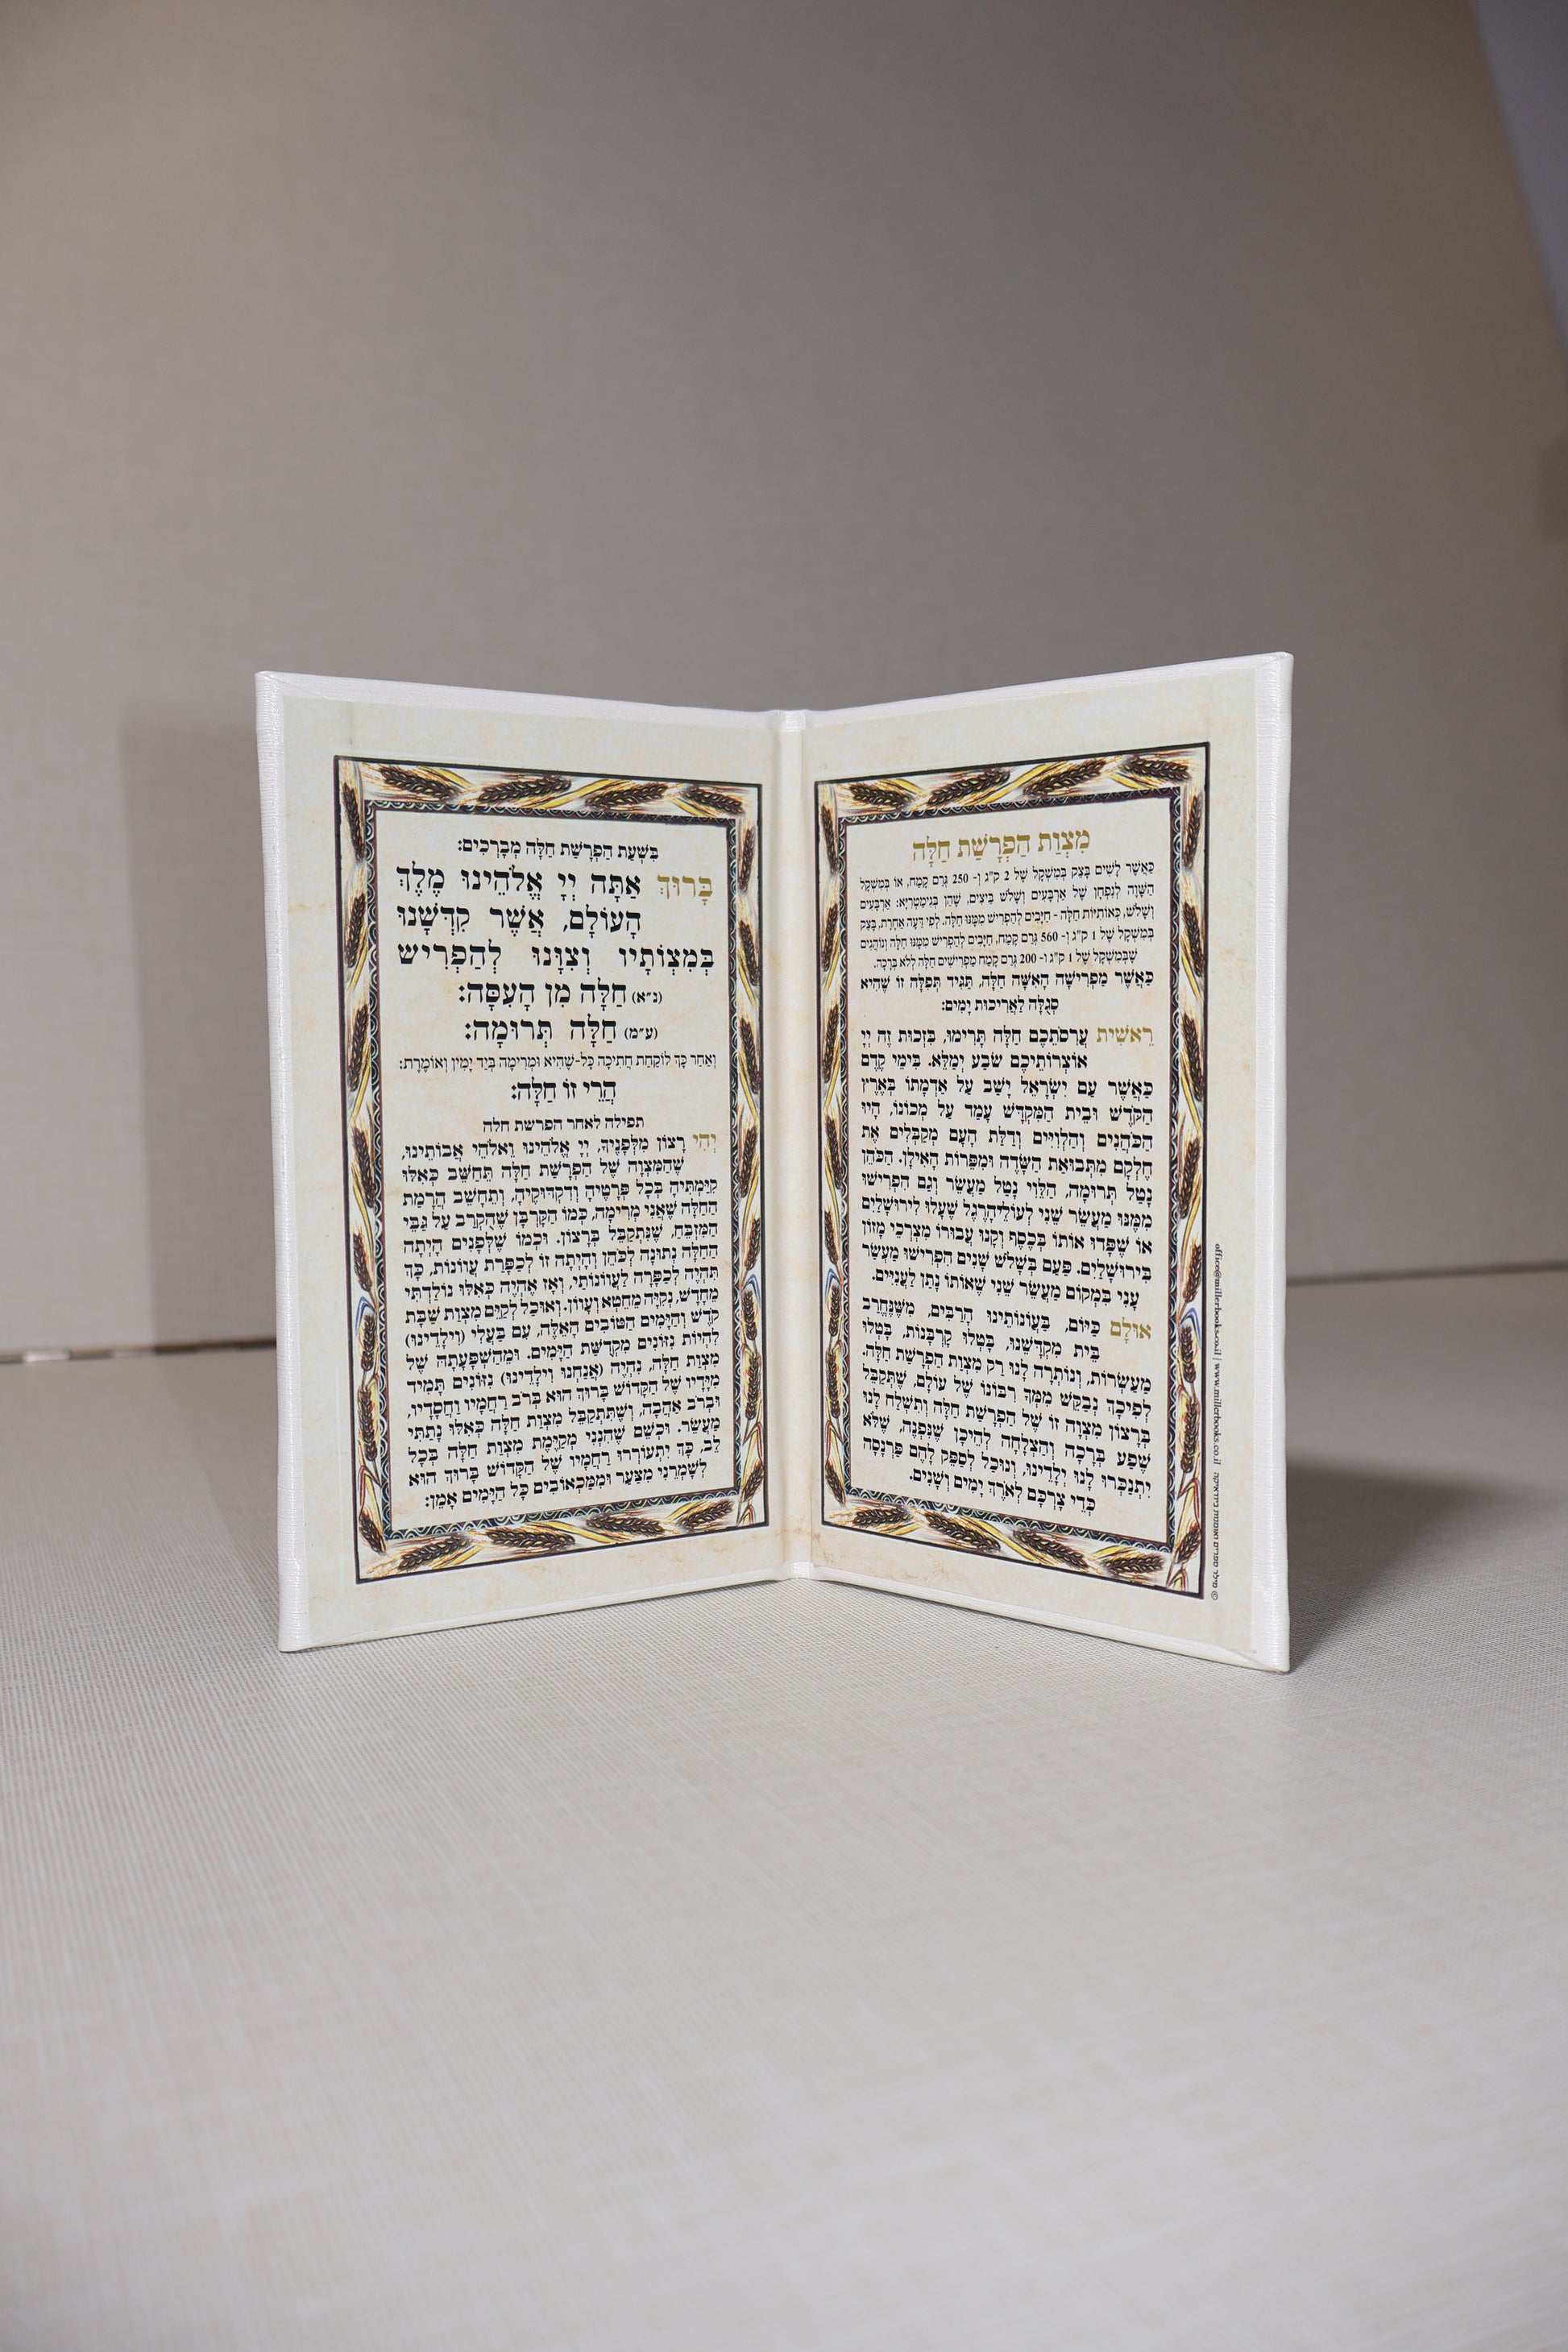 מִצְוַת הַפְרָשַׁת חַלָּה
כַּאֲשֶׁר לָשִׁים בָּצֵק בְּמִשְׁקָל שֶׁל 2 ק"ג ו- 250 גְּרַם קֶמַח, אוֹ בְּמִשְׁקָל
הַשָּׁוֶה לְנִפְחָן שֶׁל אַרְבָּעִים וְשָׁלֹשׁ בֵּיצִים, שֶׁהֵן בְּגִימַטְרִיָּא: אַרְבָּעִים
וְשָׁלֹשׁ, כְּאוֹתִיּוֹת חַלָּה - חַיָּבִים לְהַפְרִישׁ מִמֶּנּוּ חַלָּה. לְפִי דֵּעָה אַחֶרֶת, בָּצֵק
בְּמִשְׁקָל שֶׁל 1 ק"ג ו- 560 גְּרַם קֶמַח, חַיָּבִים לְהַפְרִישׁ מִמֶּנּוּ חַלָּה וְנוֹהֲגִים
שֶׁבְּמִשְׁקָל שֶׁל 1 ק"ג ו- 200 גְּרַם קֶמַח מַפְרִישִׁים חַלָּה לְלֹא בְּרָכָה.
כַּאֲשֶׁר מַפְרִישָׁה הָאִשָּׁה חַלָּה, תַּגִּיד תְּפִלָּה זוֹ שֶׁהִיא
סְגֻלָּה לַאֲרִיכוּת יָמִים:
רֵאשִׁית עֲרִסֹתֵכֶם חַלָּה תָּרִימוּ, בִּזְכוּת זֶה יְיָ
אוֹצְרוֹתֵיכֶם שֹׂבַע יְמַלֵּא. בִּימֵי קֶדֶם
כַּאֲשֶׁר עַם יִשְׂרָאֵל יָשַׁב עַל אַדְמָתוֹ בְּאֶרֶץ
הַקֹּדֶשׁ וּבֵית הַמִּקְדָּשׁ עָמַד עַל מְכוֹנוֹ, הָיוּ
הַכֹּהֲנִים וְהַלְוִיִּים וְדַלַּת הָעָם מְקַבְּלִים אֶת
חֶלְקָם מִתְּבוּאַת הַשָּׂדֶה וּמִפֵּרוֹת הָאִילָן. הַכֹּהֵן
נָטַל תְּרוּמָה, הַלֵּוִי נָטַל מַעֲשֵׂר וְגַם הִפְרִישׁוּ
מִמֶּנּוּ מַעֲשֵׂר שֵׁנִי לְעוֹלֵי־הָרֶגֶל שֶׁעָלוּ לִירוּשָׁלַיִם
אוֹ שֶׁפָּדוּ אוֹתוֹ בְּכֶסֶף וְקָנוּ עֲבוּרוֹ מִצְרְכֵי מָזוֹן
בִּירוּשָׁלַיִם. פַּעַם בְּשָׁלֹשׁ שָׁנִים הִפְרִישׁוּ מַעֲשֵׂר
עָנִי בִּמְקוֹם מַעֲשֵׂר שֵׁנִי שֶׁאוֹתוֹ נָתַן לָעֲנִיִּים.
אוּלָם כַּיּוֹם, בַּעֲוֹנוֹתֵינוּ הָרַבִּים, מִשֶּׁנֶּחֱרַב
בֵּית מִקְדָּשֵׁנוּ, בָּטְלוּ קָרְבָּנוֹת, בָּטְלוּ
מַעַשְׂרוֹת, וְנוֹתְרָה לָנוּ רַק מִצְוַת הַפְרָשַׁת חַלָּה.
לְפִיכָךְ נְבַקֵּשׁ מִמְּךָ רִבּוֹנוֹ שֶׁל עוֹלָם, שֶׁתְּקַבֵּל
בְּרָצוֹן מִצְוָה זוֹ שֶׁל הַפְרָשַׁת חַלָּה וְתִשְׁלַח לָנוּ
שֶׁפַע בְּרָכָה וְהַצְלָחָה לְהֵיכָן שֶׁנִּפְנֶה, שֶׁלֹּא
יִתְנַכְּרוּ לָנוּ יְלָדֵינוּ, וְנוּכַל לְסַפֵּק לָהֶם פַּרְנָסָה
כְּדֵי צָרְכָּם לְאֹרֶךְ יָמִים וְשָׁנִים.
© מילר ספרים ואומנות ביודאיקה office@millerbooks.co.il | www.millerbooks.co.il
בִּשְׁעַת הַפְרָשַׁת חַלָּה מְבָרְכִים:
בָּרוּךְ אַתָּה יְיָ אֱלֹהֵינוּ מֶלֶךְ
הָעוֹלָם, אֲשֶׁר קִדְּשָׁנוּ
בְּמִצְוֹתָיו וְצִוָּנוּ לְהַפְרִישׁ
(נ"א) חַלָּה מִן הָעִסָּה:
(ע"מ) חַלָּה תְּרוּמָה:
וְאַחַר כָּךְ לוֹקַחַת חֲתִיכָה כָּל-שֶׁהִיא וּמְרִימָה בְּיַד יָמִין וְאוֹמֶרֶת:
הֲרֵי זוֹ חַלָּה:
תפילה לאחר הפרשת חלה
יְהִי רָצוֹן מִלְּפָנֶיךָ, יְיָ אֱלֹהֵינוּ וֵאלֹהֵי אֲבוֹתֵינוּ,
שֶׁהַמִּצְוָה שֶׁל הַפְרָשַׁת חַלָּה תֵּחָשֵׁב כְּאִלּוּ
קִיַּמְתִּיהָ בְּכָל פְּרָטֶיהָ וְדִקְדּוּקֶיהָ, וְתֵחָשֵׁב הֲרָמַת
הַחַלָּה שֶׁאֲנִי מְרִימָה, כְּמוֹ הַקָּרְבָּן שֶׁהֻקְרַב עַל גַּבֵּי
הַמִּזְבֵּחַ, שֶׁנִּתְקַבֵּל בְּרָצוֹן. וּכְמוֹ שֶׁלְּפָנִים הָיְתָה
הַחַלָּה נְתוּנָה לַכֹּהֵן וְהָיְתָה זוֹ לְכַפָּרַת עֲווֹנוֹת, כָּךְ
תִּהְיֶה לְכַפָּרָה לַעֲווֹנוֹתַי, וְאָז אֶהְיֶה כְּאִלּוּ נוֹלַדְתִּי
מֵחָדָשׁ, נְקִיָּה מֵחֵטְא וְעָווֹן. וְאוּכַל לְקַיֵּם מִצְוַת שַׁבַּת
קֹדֶשׁ וְהַיָּמִים הַטּוֹבִים הָאֵלֶּה, עִם בַּעֲלִי (וִילָדֵינוּ)
לִהְיוֹת נִזּוֹנִים מִקְּדֻשַּׁת הַיָּמִים. וּמֵהַשְׁפָּעָתָהּ שֶׁל
מִצְוַת חַלָּה, נִהְיֶה (אֲנַחְנוּ וִילָדֵינוּ) נִזּוֹנִים תָּמִיד
מִיָּדָיו שֶׁל הַקָּדוֹשׁ בָּרוּךְ הוּא בְּרֹב רַחֲמָיו וַחֲסָדָיו,
וּבְרֹב אַהֲבָה, וְשֶׁתִּתְקַבֵּל מִצְוַת חַלָּה כְּאִלּוּ נָתַתִּי
מַעֲשֵׂר. וּכְשֵׁם שֶׁהִנְנִי מְקַיֶּמֶת מִצְוַת חַלָּה בְּכָל
לֵב, כָּךְ יִתְעוֹרְרוּ רַחֲמָיו שֶׁל הַקָּדוֹשׁ בָּרוּךְ הוּא
לְשָׁמְרֵנִי מִצַּעַר וּמִמַּכְאוֹבִים כָּל הַיָּמִים אָמֵן: